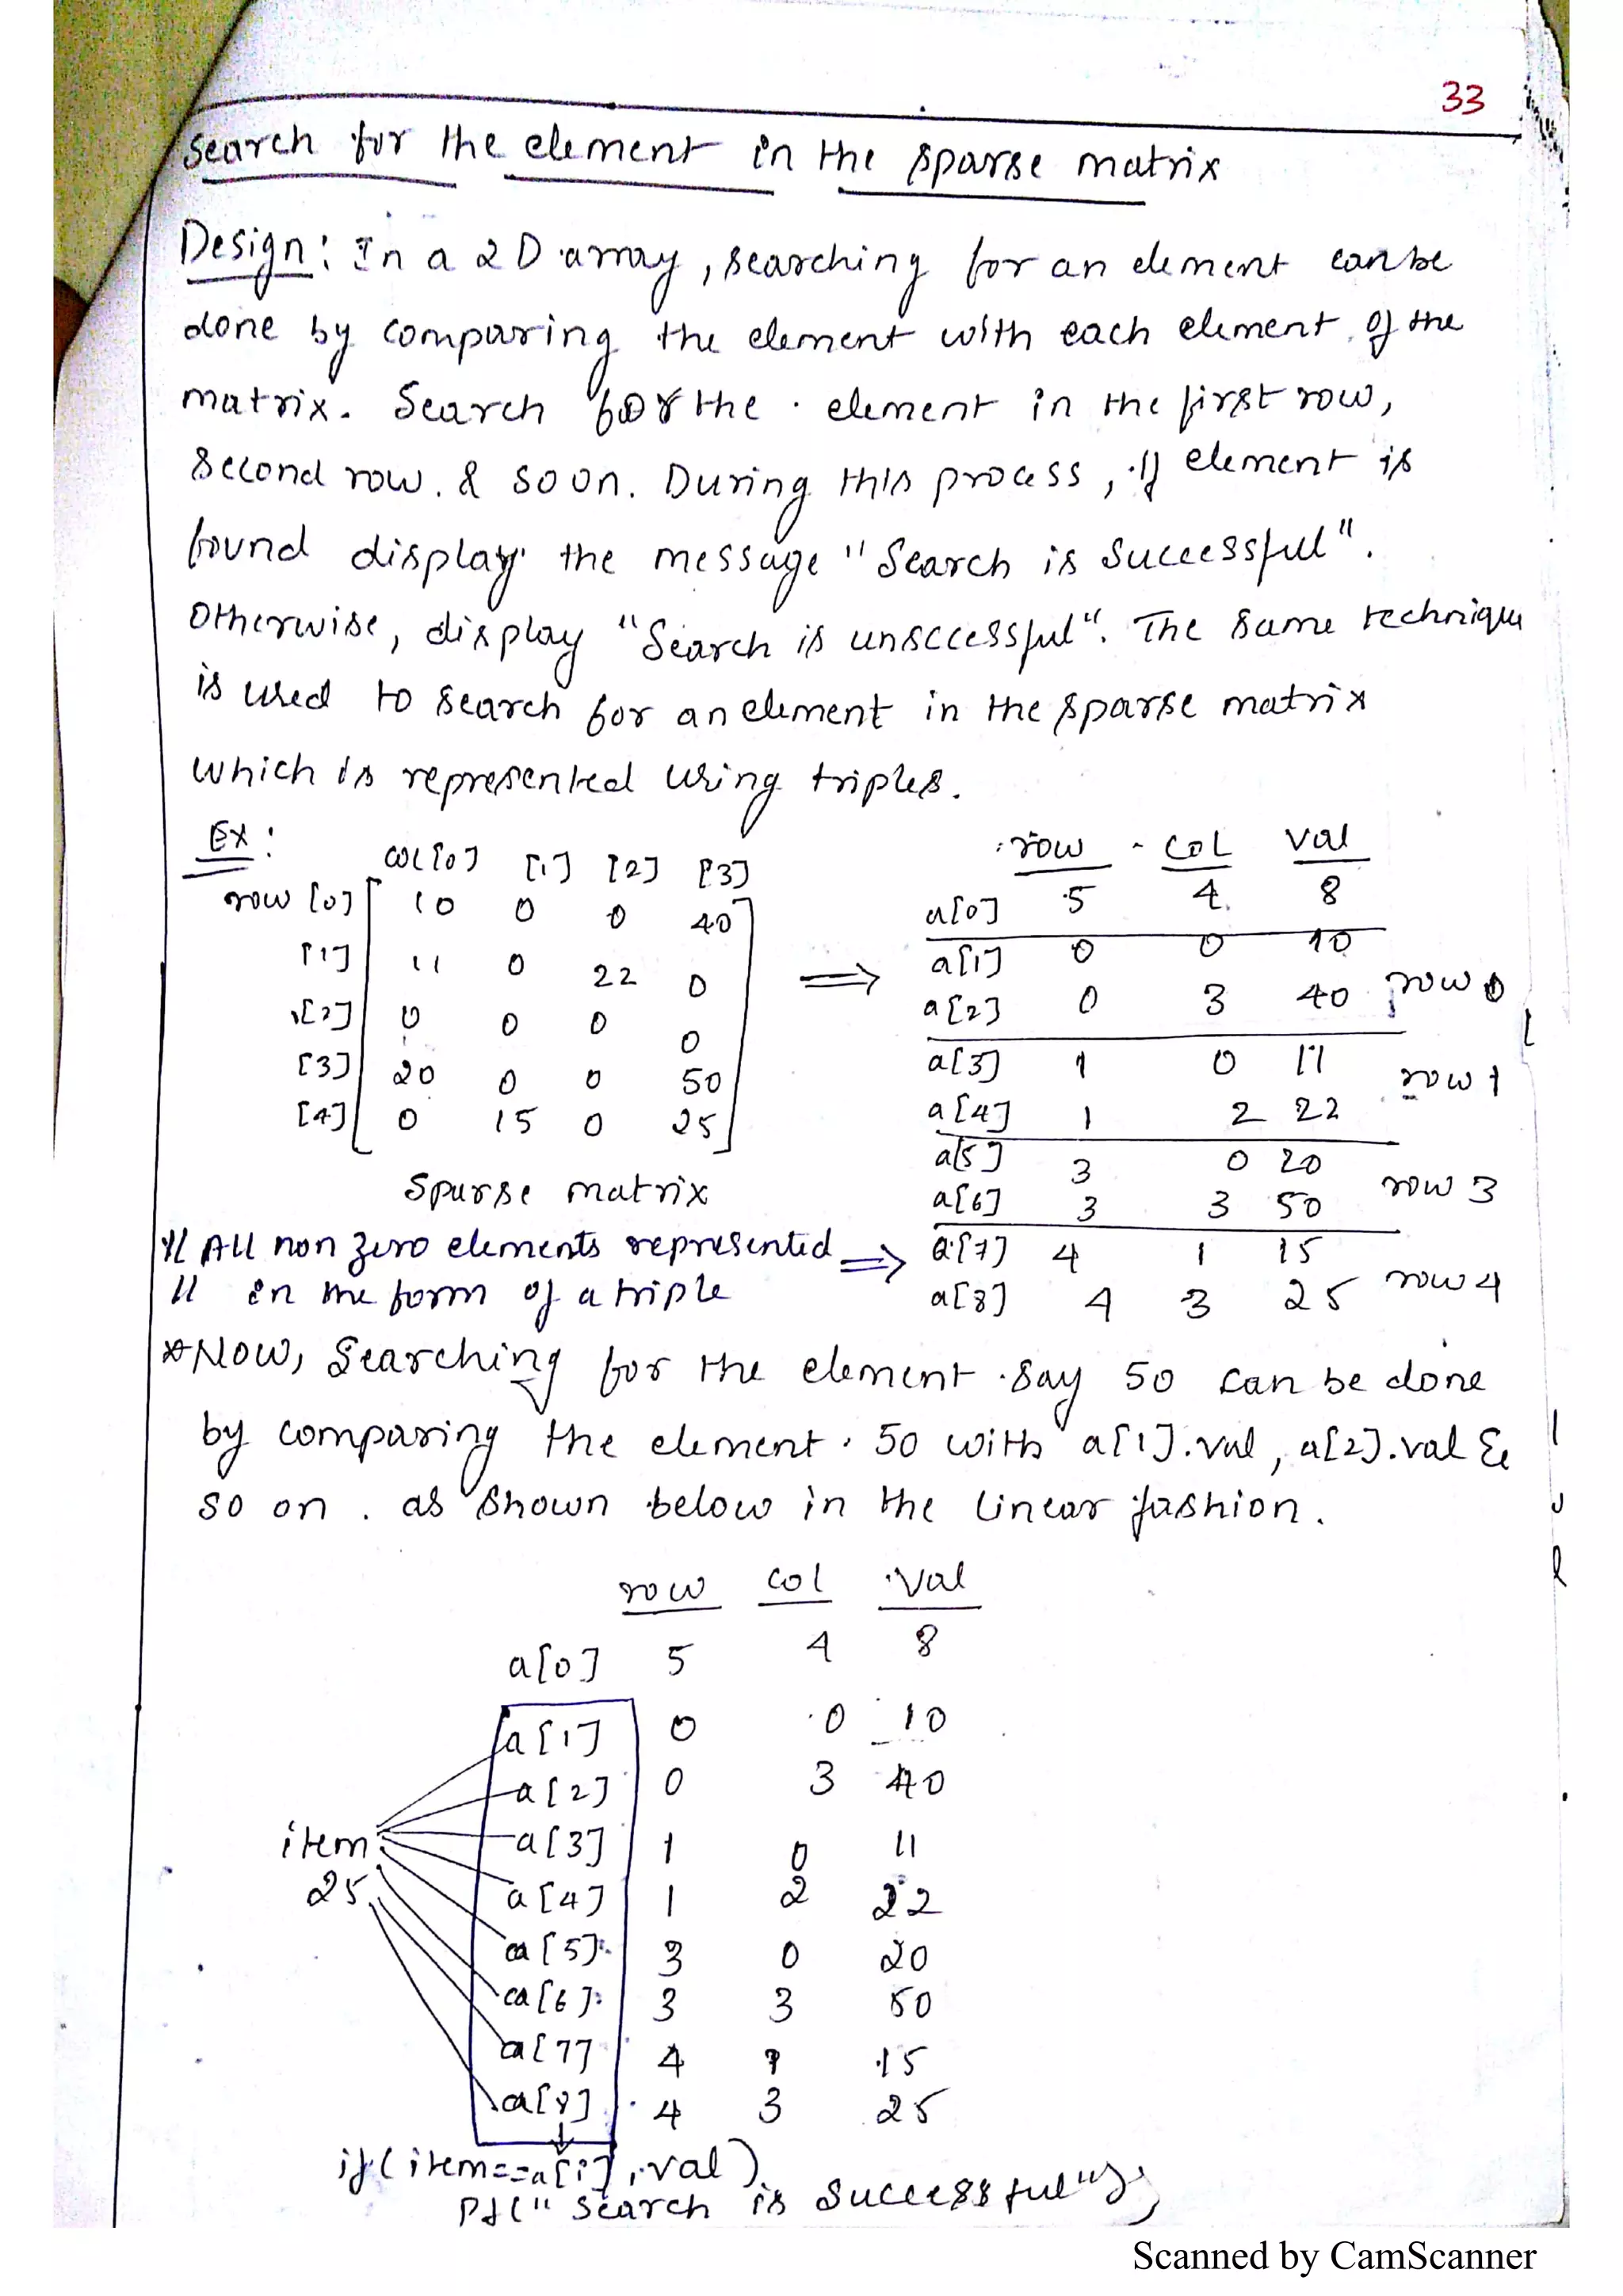 33
Search for the element in the sparse matrix
Design: In a 2D array, searching for an element can be
done by comparing the element with each element of the
matrix. Search for the element in the first row,
second row. & so on. During this process, if element is
found display the message "Search is Successful".
Otherwise, display "Search is unsccessful". The same technique
is used to search for an element in the sparse matrix
which is represented using triples.
Ex:
col[0] [1] [2] [3]
row [0] 10 0 0 40
[1] 11 0 22 0
[2] 0 0 0 0
[3] 20 0 0 50
[4] 0 15 0 25
Sparse matrix
row col val
a[0] 5 4 8
a[1] 0 0 10
a[2] 0 3 40 row 0
a[3] 1 0 11
a[4] 1 2 22 row 1
a[5] 3 0 20
a[6] 3 3 50 row 3
a[7] 4 1 15
a[8] 4 3 25 row 4
// All non zero elements represented ⇒
// in the form of a triple
*Now, Searching for the element say 50 can be done
by comparing the element 50 with a[1].val, a[2].val &
so on. as shown below in the linear fashion.
row col val
a[0] 5 4 8
a[1] 0 0 10
a[2] 0 3 40
item a[3] 1 0 11
25 a[4] 1 2 22
a[5] 3 0 20
a[6] 3 3 50
a[7] 4 1 15
a[8] 4 3 25
if(item==a[i].val)
Pf("Search is Successful");
Scanned by CamScanner